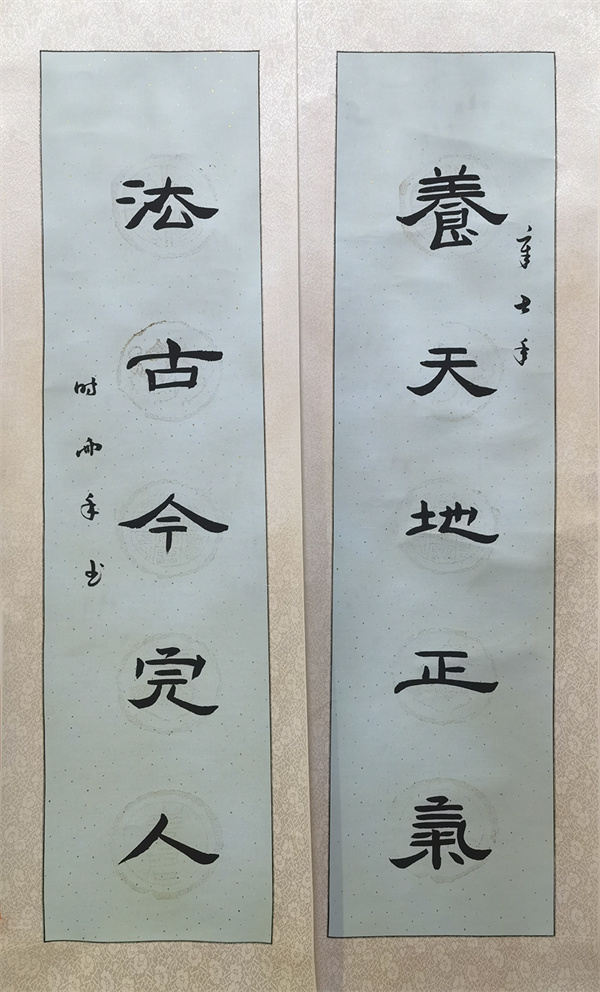 辛丑年
養天地正氣
法古今完人
时雨书